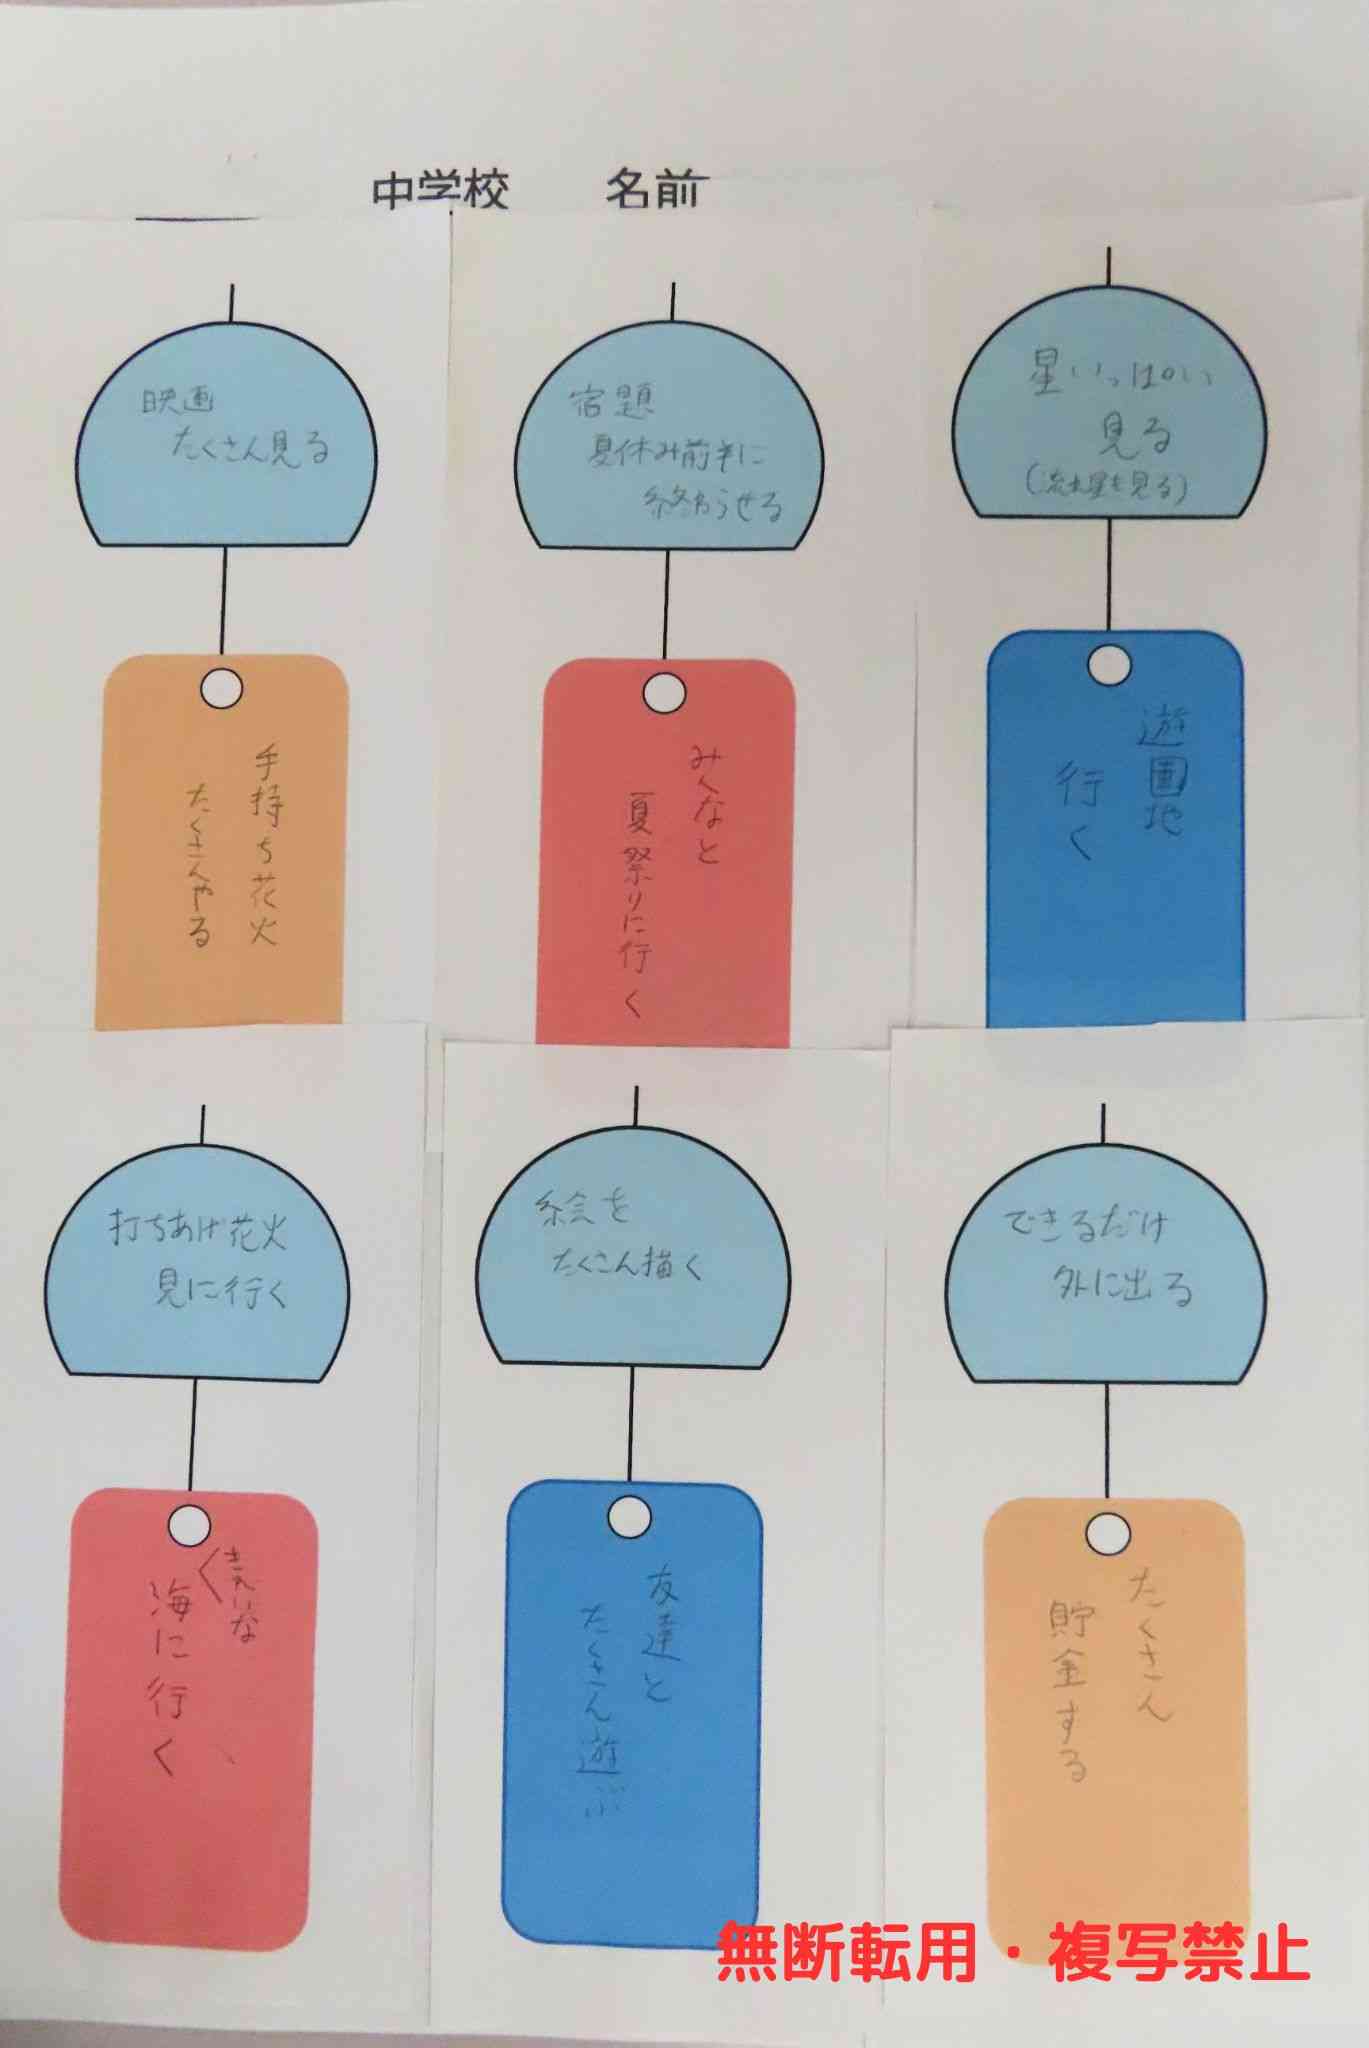 中学校 名前
映画
たくさん見る
手持ち花火
たくさんやる
宿題
夏休み前半に
終わらせる
みんなと
夏祭りに行く
星いっぱい
見る
(流れ星も見る)
遊園地
行く
打ちあげ花火
見に行く
きれいな
海に行く
絵を
たくさん描く
友達と
たくさん遊ぶ
できるだけ
外に出る
たくさん
貯金する
無断転用・複写禁止